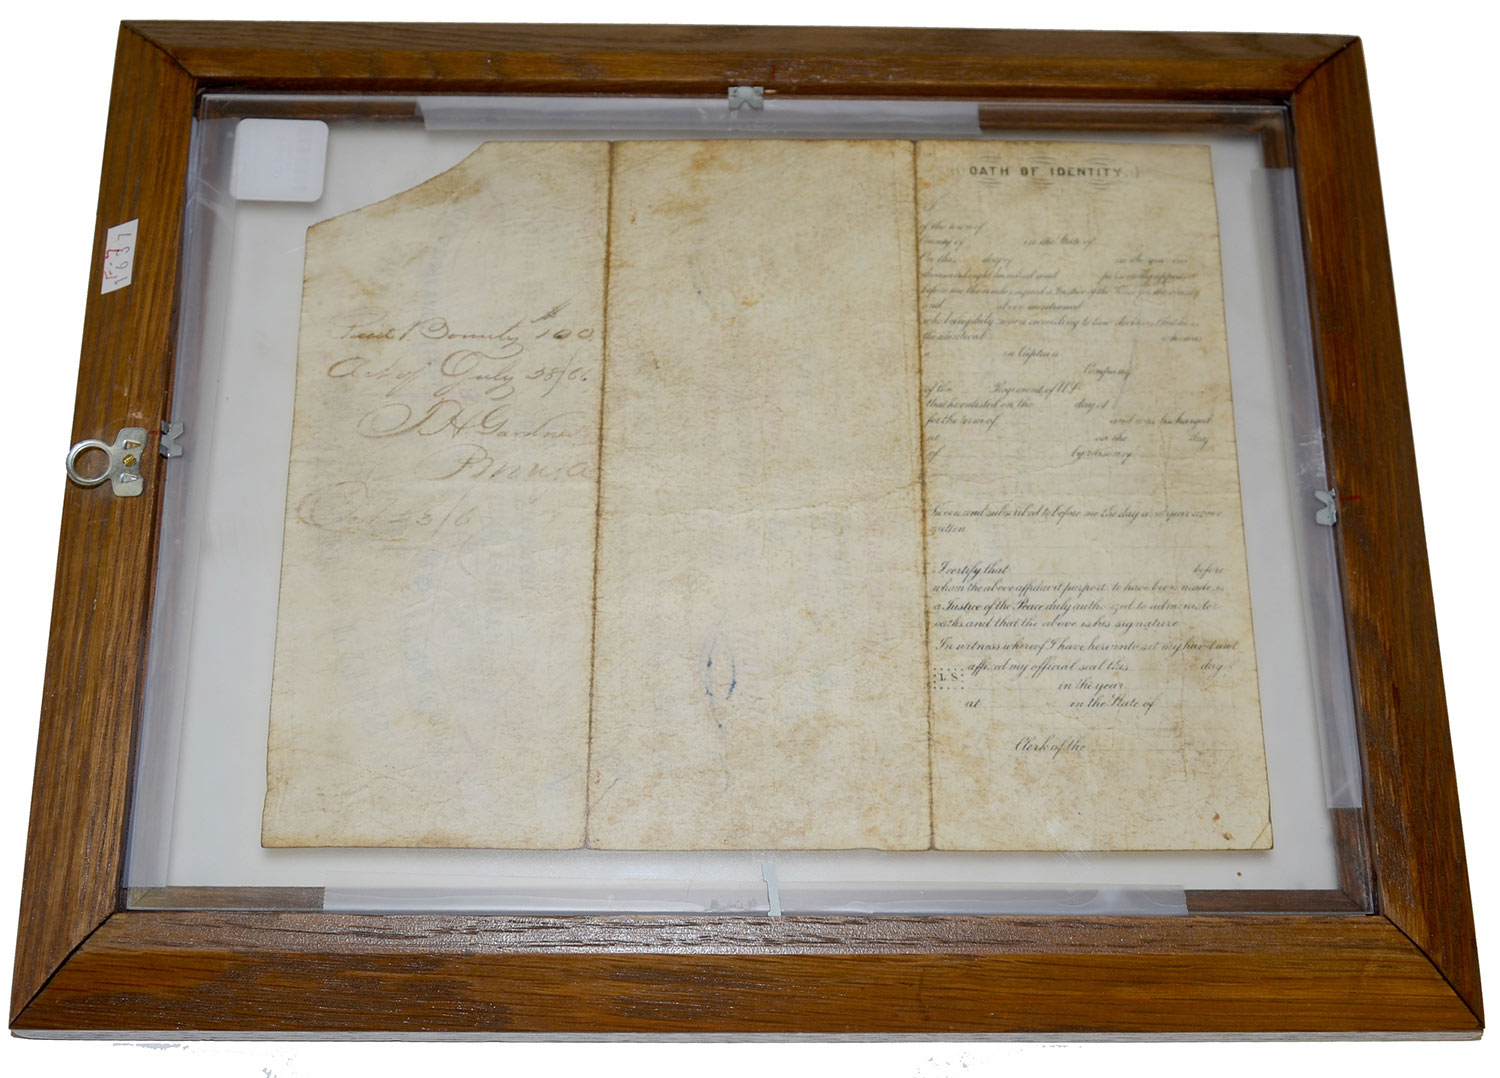 F-7
1637
Paid Bounty 100
Act of July 28/66
T H Gardner
PM U.S.A
Oct 23/6
OATH OF IDENTITY.
I
of the town of
County of in the State of
On this day of in the year one
thousand eight hundred and personally appeared
before me the undersigned a Justice of the Peace for the county
and above mentioned
who being duly sworn according to law declares that he is
the identical who was
a in Captain
Company
of the Regiment of U.S.
that he enlisted on the day of
for the term of and was discharged
at on the day
of by reason of
Sworn and subscribed to before me the day and year above
written
I certify that before
whom the above affidavit purports to have been made is
a Justice of the Peace duly authorized to administer
oaths and that the above is his signature
In witness whereof I have hereunto set my hand and
affixed my official seal this day of
L S
in the year
at in the State of
Clerk of the